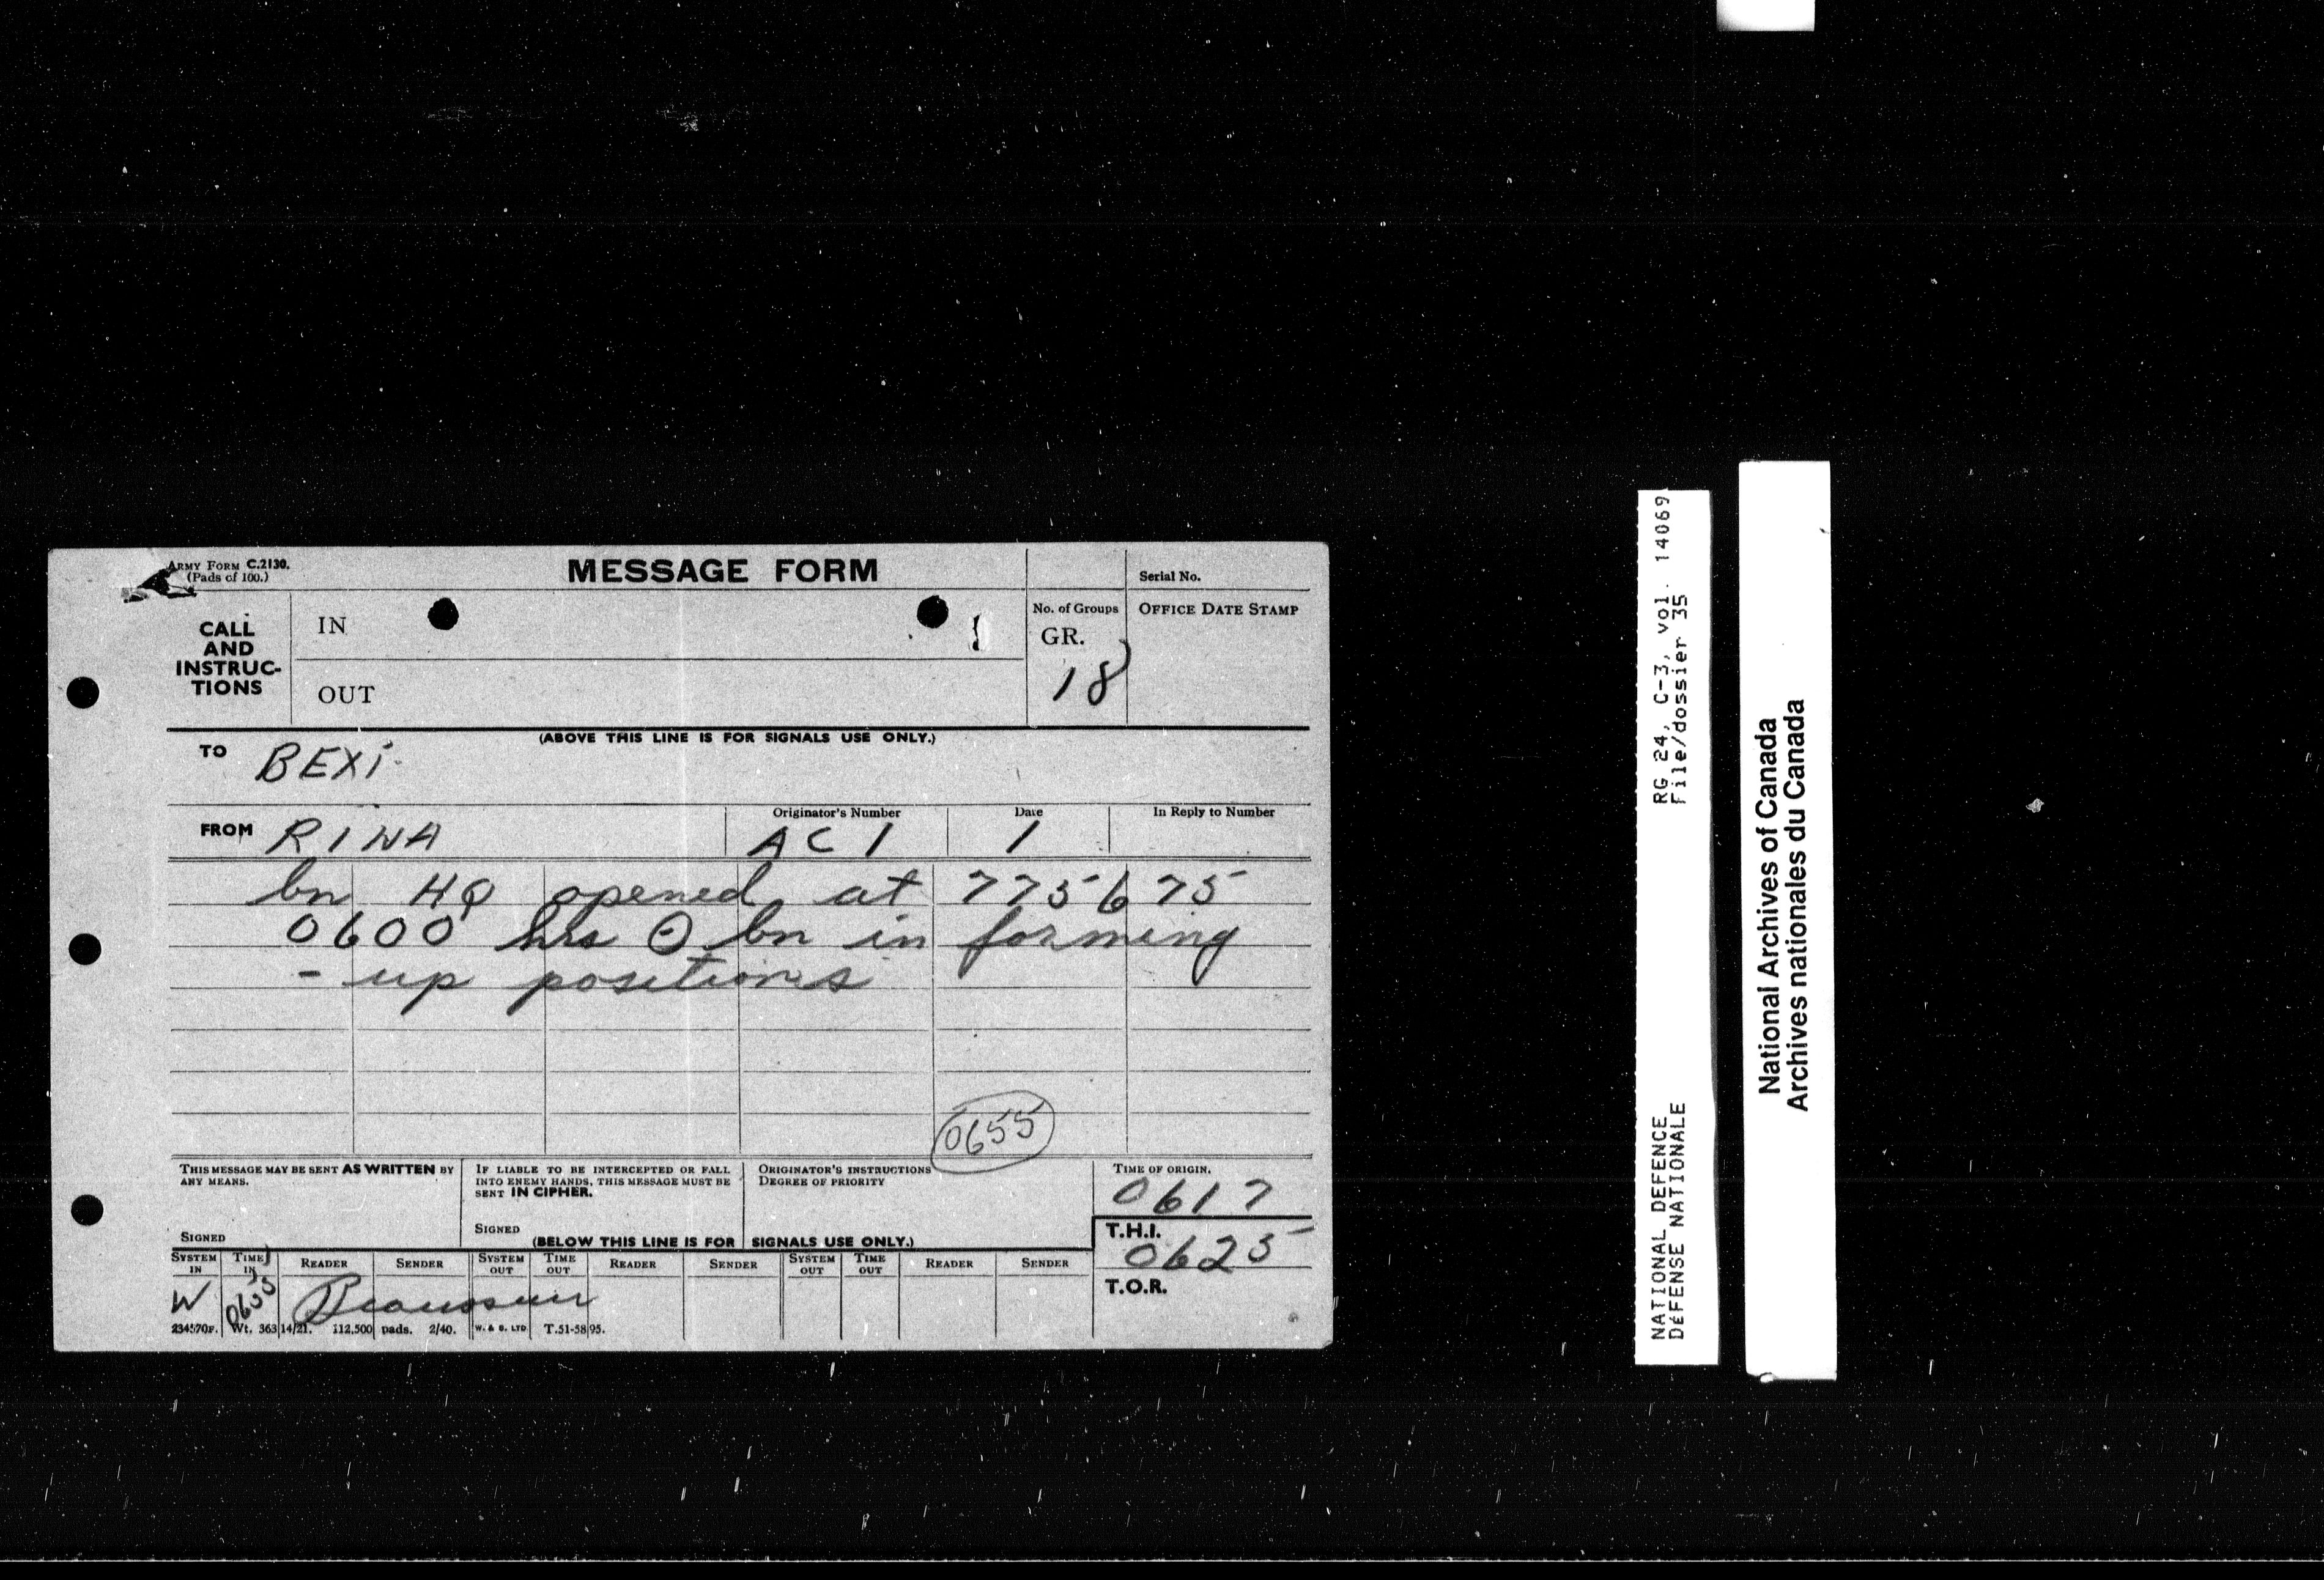 ARMY FORM C.2130.
(Pads of 100.)
MESSAGE FORM
Serial No.
CALL
AND
INSTRUC-
TIONS
IN
OUT
No. of Groups
GR.
18
OFFICE DATE STAMP
(ABOVE THIS LINE IS FOR SIGNALS USE ONLY.)
TO BEXI
FROM RINA
Originator's Number
AC 1
Date
1
In Reply to Number
bn HQ opened at 775675
0600 hrs ⊙ bn in forming
- up positions
0655
THIS MESSAGE MAY BE SENT AS WRITTEN BY
ANY MEANS.
SIGNED
IF LIABLE TO BE INTERCEPTED OR FALL
INTO ENEMY HANDS, THIS MESSAGE MUST BE
SENT IN CIPHER.
SIGNED
ORIGINATOR'S INSTRUCTIONS
DEGREE OF PRIORITY
TIME OF ORIGIN.
0617
T.H.I.
0625
T.O.R.
(BELOW THIS LINE IS FOR SIGNALS USE ONLY.)
SYSTEM IN TIME IN READER SENDER SYSTEM OUT TIME OUT READER SENDER SYSTEM OUT TIME OUT READER SENDER
W
234570F. Wt. 36314/21. 112,500 pads. 2/40. W. & S. LTD. T.51-5895.
RG 24, C-3, vol. 14069
File/dossier 35
NATIONAL DEFENCE
DÉFENSE NATIONALE
National Archives of Canada
Archives nationales du Canada